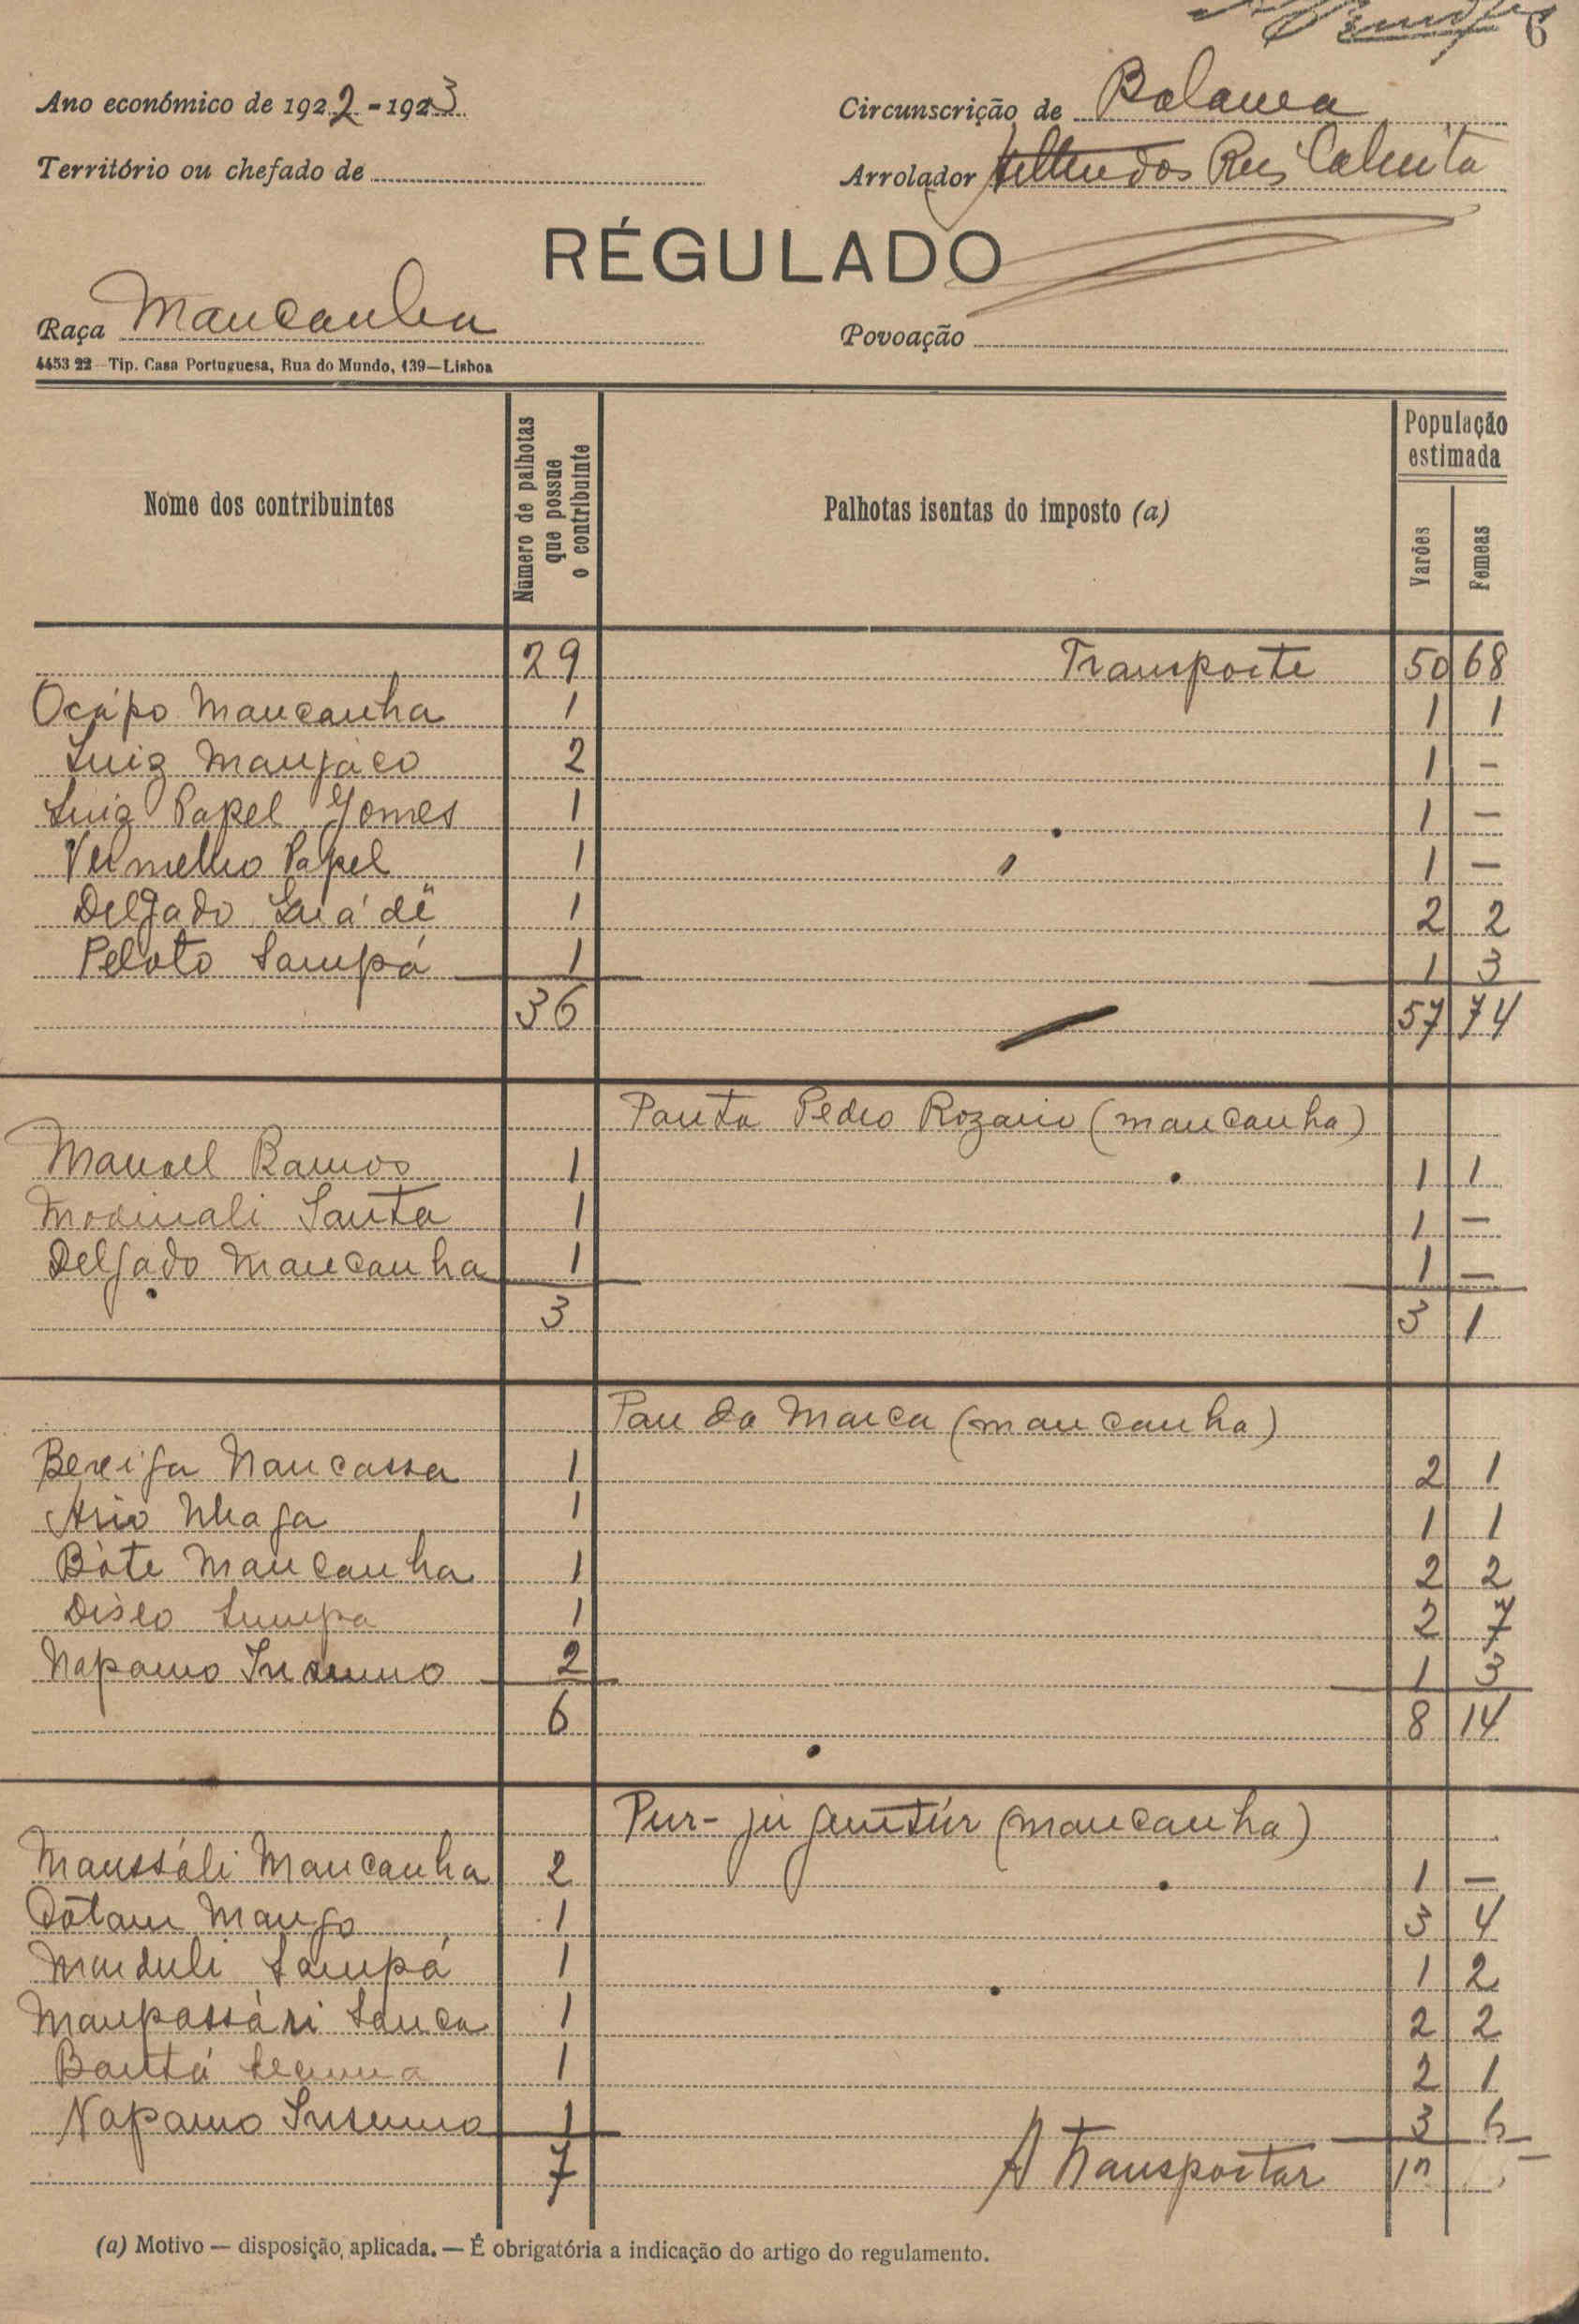 6
Ano económico de 1922-1923
Circunscrição de Bolama
Território ou chefado de
Arrolador dos Reis
RÉGULADO
Raça Mancanha
Povoação
4453 22—Tip. Casa Portuguesa, Rua do Mundo, 139—Lisboa
Nome dos contribuintes
Número de palhotas que possue o contribuinte
Palhotas isentas do imposto (a)
População estimada
Varões
Femeas
29 Transporte 50 68
Ocápo Mancanha 1 1 1
Luiz Manjaco 2 1 –
Luiz Papel Gomes 1 1 –
Vermelho Papel 1 1 –
Delgado 1 2 2
Peloto Sampá 1 1 3
36 57 74
Panta Pedro Rozario (mancanha)
Manoel Ramos 1 1 1
Santa 1 1 –
Delgado Mancanha 1 1 –
3 3 1
Pau da Marca (mancanha)
Nancassa 1 2 1
Nhaga 1 1 1
Bóte Mancanha 1 2 2
1 2 7
Napamo 2 1 3
6 8 14
(mancanha)
Manssáli Mancanha 2 1 –
Mango 1 3 4
Sampá 1 1 2
Sanca 1 2 2
1 2 1
Napamo 1 3 6
7 A Transportar
(a) Motivo — disposição, aplicada. — É obrigatória a indicação do artigo do regulamento.